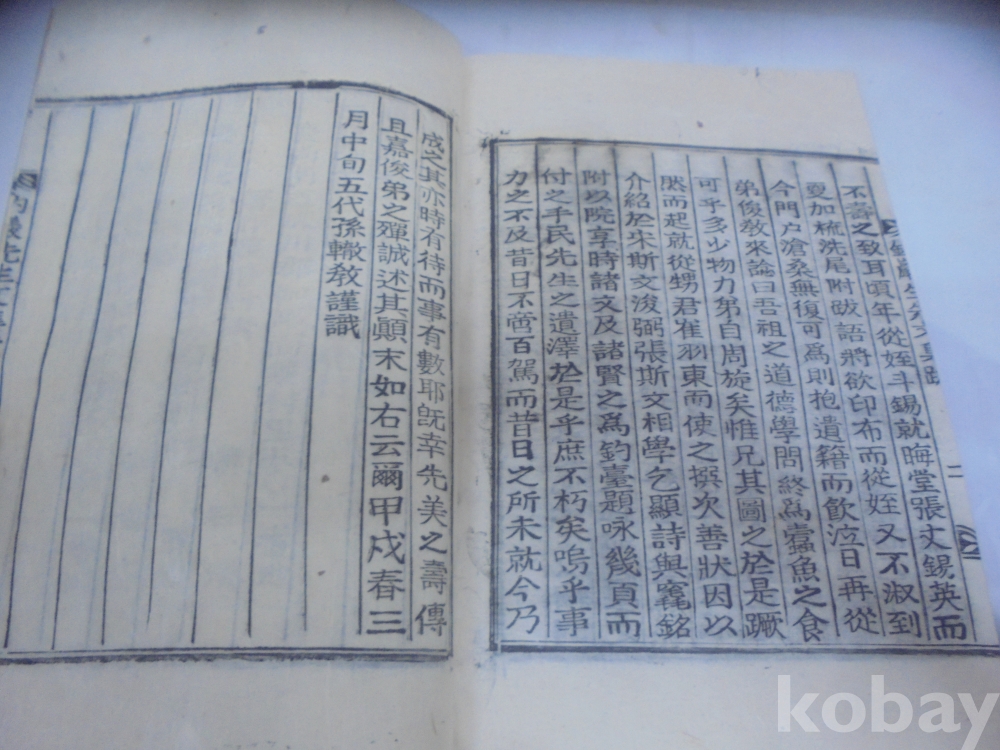 不壽之致耳頃年從姪斗錫就晦堂張丈錫英而
更加梳洗尾附跋語將欲印布而從姪又不淑到
今門户滄桑無復可爲則抱遺籍而飮泣日再從
弟俊敎來論曰吾祖之道德學問終爲蠹魚之食
可乎多少物力弟自周旋矣惟兄其圖之於是蹶
然而起就從甥君崔羽東而使之撰次善狀因以
介紹於朱斯文浚弼張斯文相學乞顯詩與窀銘
附以院享時諸文及諸賢之爲釣臺題咏幾頁而
付之手民先生之遺澤於是乎庶不朽矣嗚乎事
力之不及昔日不啻百駕而昔日之所未就今乃
二
成之其亦時有待而事有數耶旣幸先美之壽傳
且嘉俊弟之殫誠述其顚末如右云爾甲戌春三
月中旬五代孫轍敎謹識
kobay